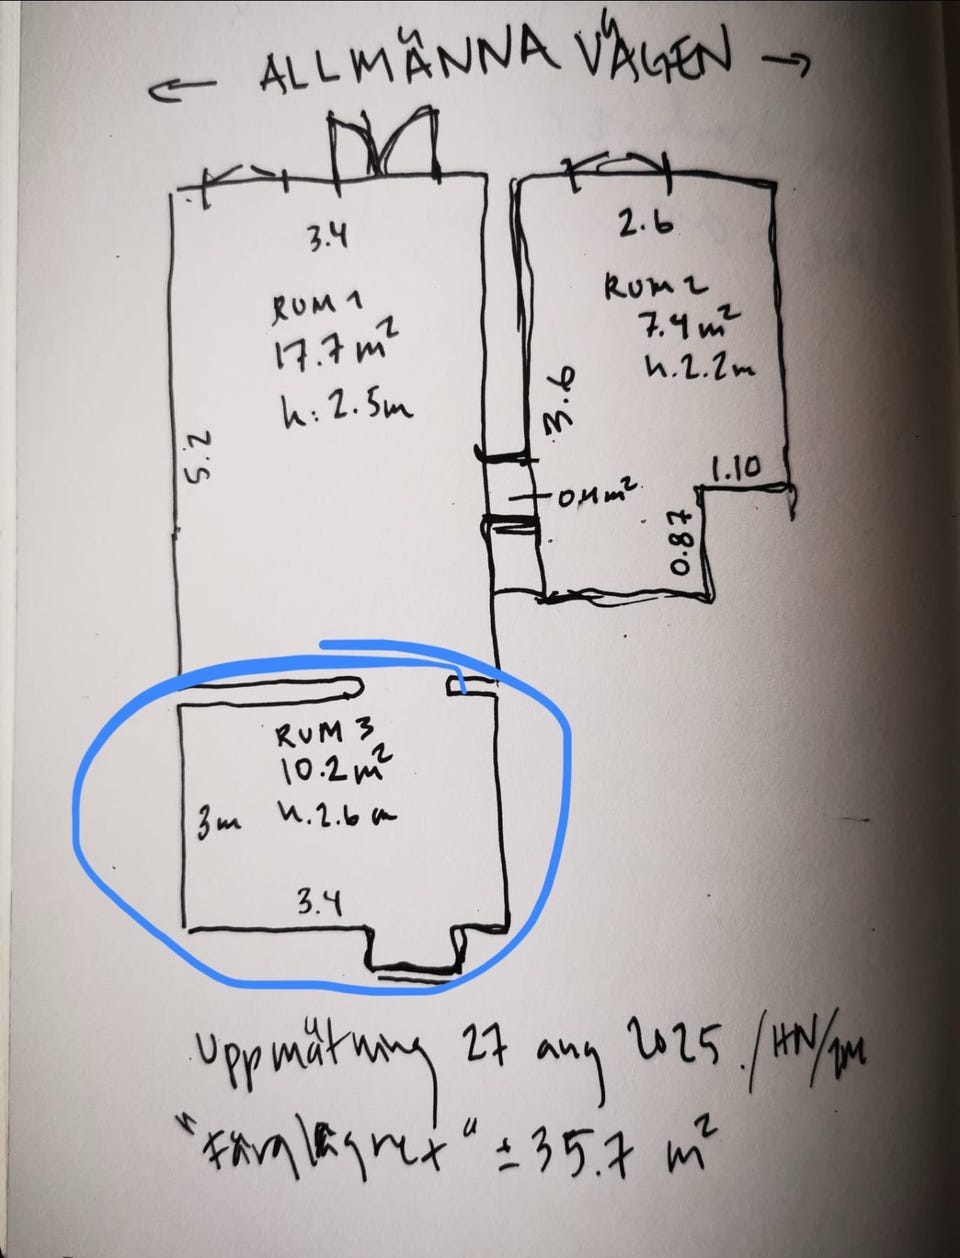 ← ALLMÄNNA VÄGEN →
3.4
RUM 1
17.7 m²
h: 2.5m
5.2
2.6
RUM 2
7.4 m²
h. 2.2m
3.6
1.10
0.87
m²
RUM 3
10.2 m²
h. 2.6 m
3m
3.4
Uppmätning 27 aug 2025 /HN/
"Färglagret" ± 35.7 m²